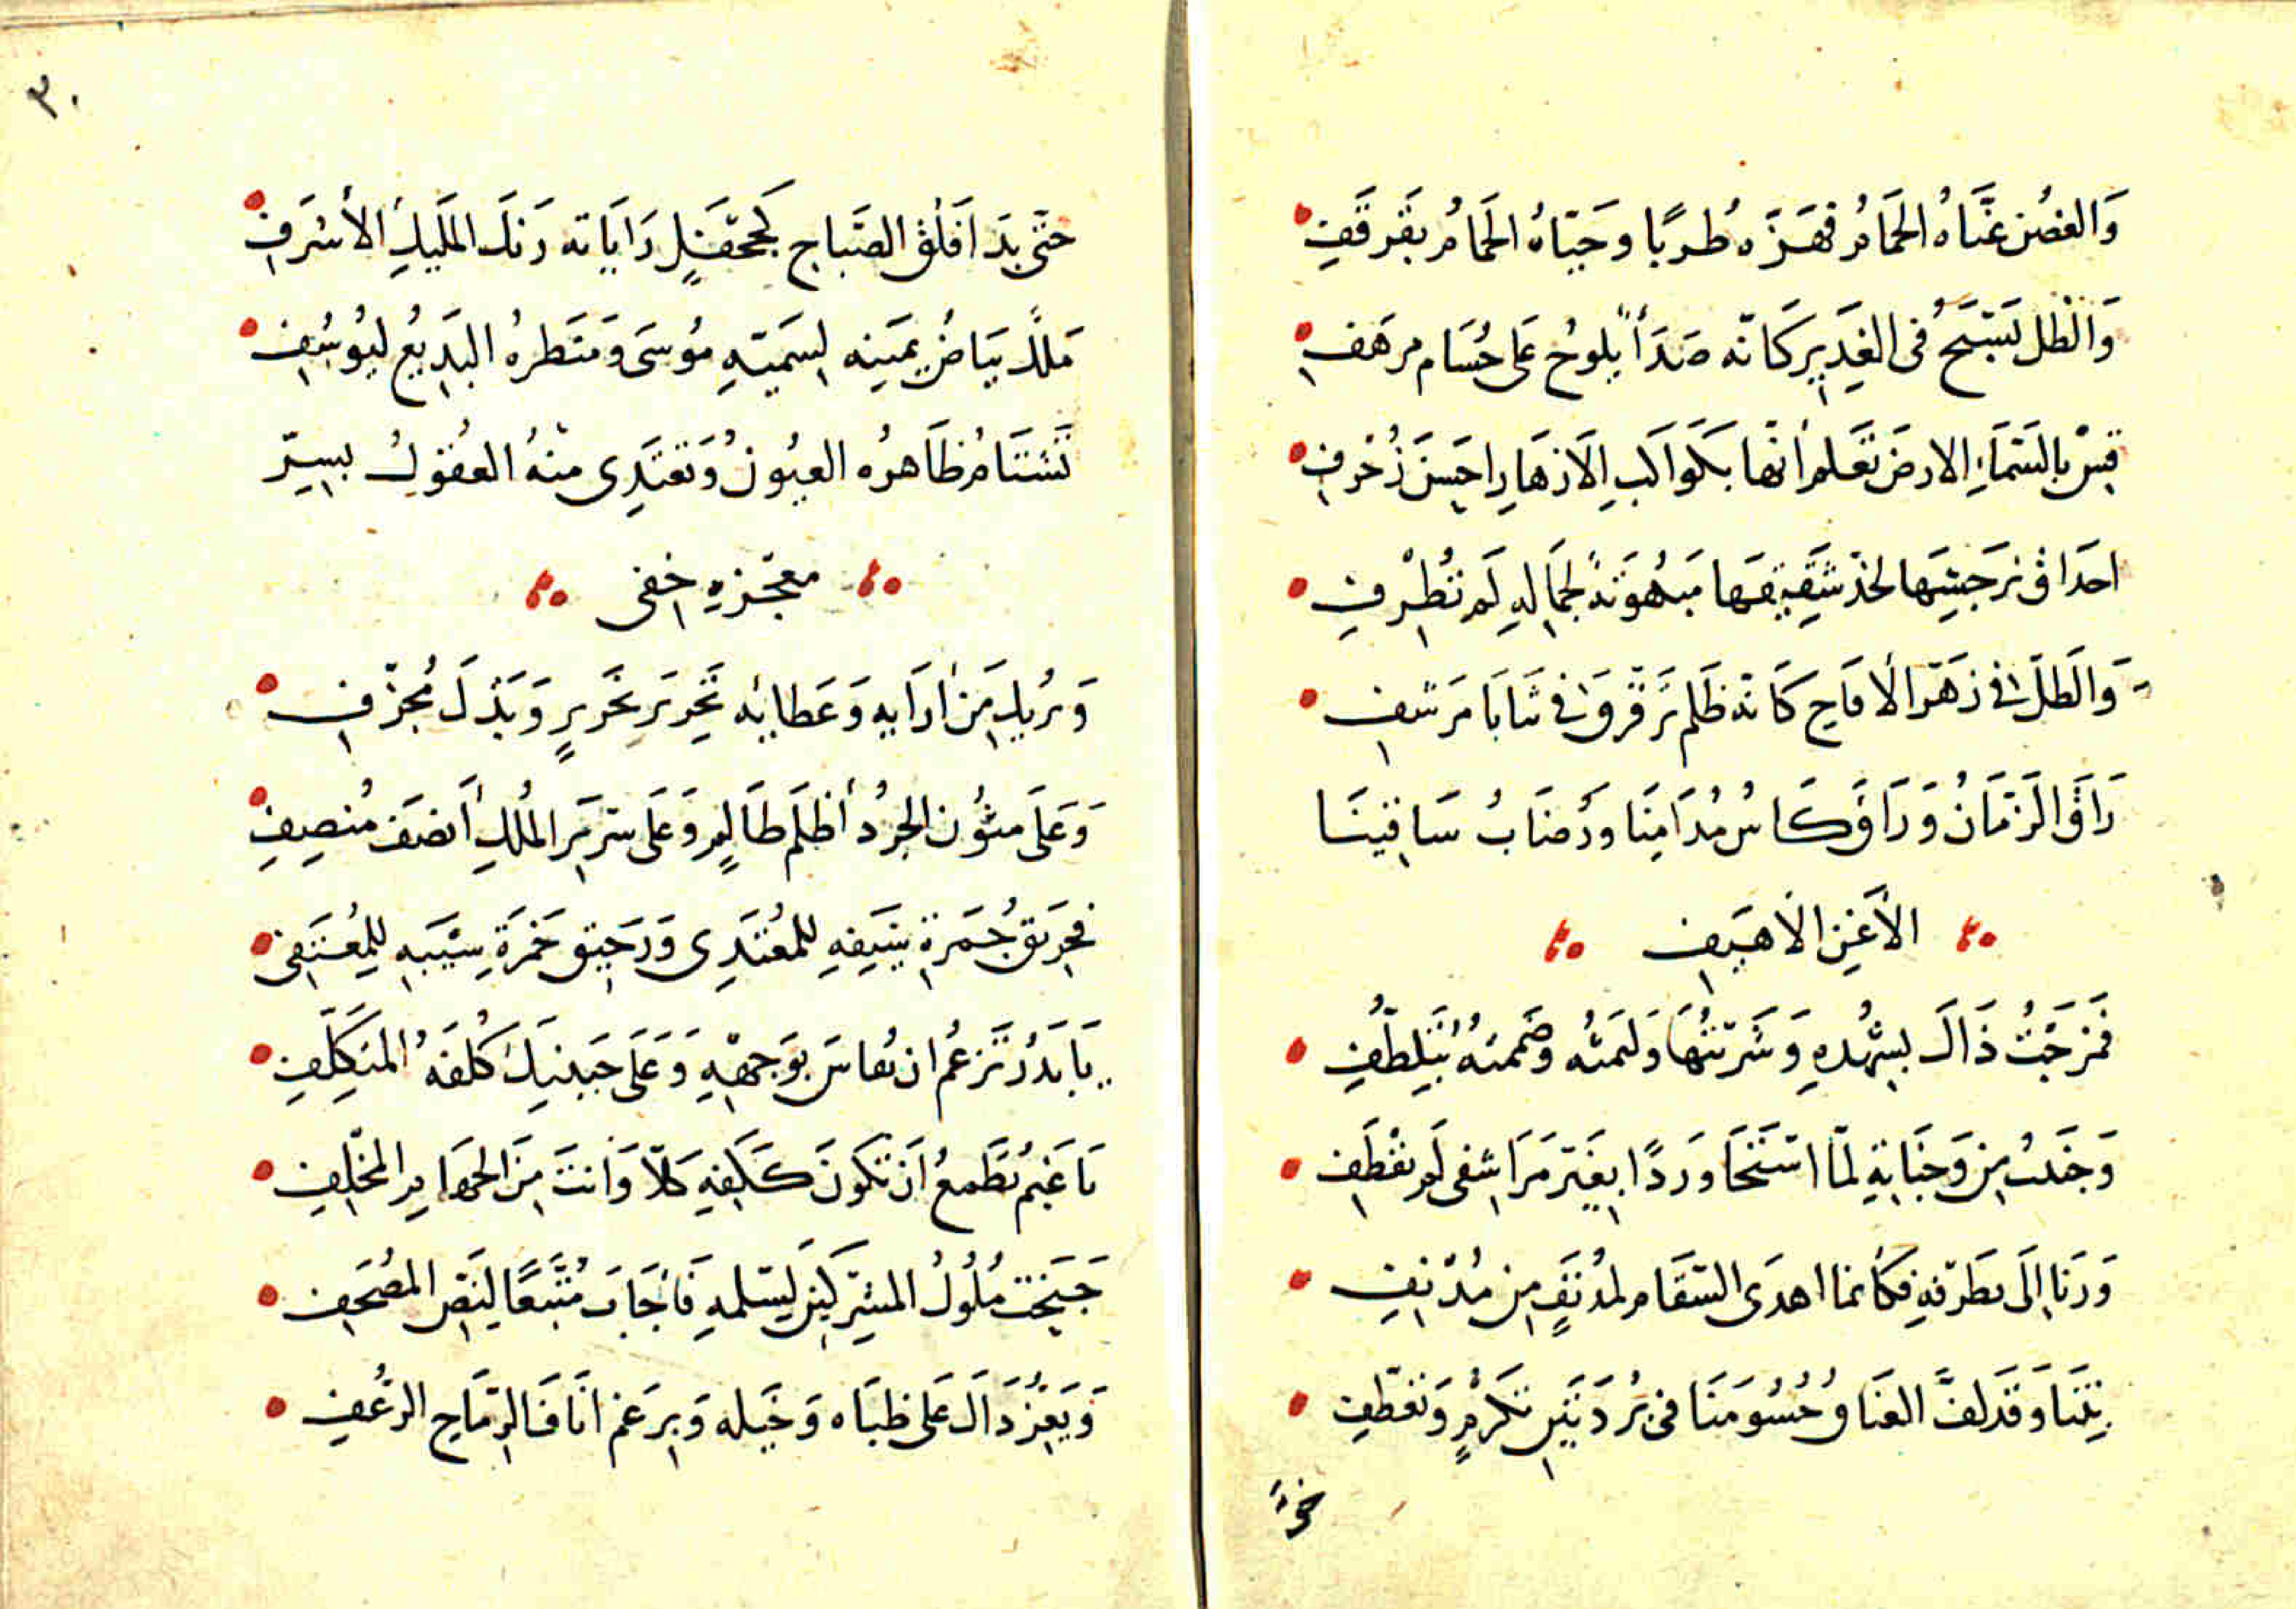 وَالغصُن غنَّاهُ الحَمَامُ فهَزّه طُربًا وحَيّاهُ الحَمامُ بقَرقَفِ
وَالظل يَسْبَحُ فى الغَدِيرِ كَانّه صَدَأ يلوحُ عَلى حُسَام مرهَفِ
قِسْ بالسَّمَاءِ الارضَ تَعَلم أنّها بكَواكبِ الاَزهَارِ احسَن زُخْرفِ
احَداق نرجَسِهَا لخدّ شَقِيقهَا مَبهُوتَةً لجَمَالِهِ لَم تُطْرفِ
وَالطَلّ فى زهَر الأقاحِ كَانّهَ ظَلم تَرَقرقَ فى ثنايَا مَرشفِ
رَاقَ الزمَانُ وَرَاقَ كَاسُ مُدَامنَا ورُضَابُ سَاقينَا
الأغَنِ الأهيَفِ
فمزجَتُ ذَاكَ بشَهْدِهِ وَشَربتُهَا وَلثمتُه وضَممتهُ بتَلطّفِ
وَجَنَتْ مِن وَجَنَاتِهِ لمّا استَحَا وَردًا بغَيرِ مَرَاشِفى لَم يقْطَفِ
وَرَنا إلَى بطَرفهِ فكَأنما اهدَى السّقَام لمُدنَفٍ مِن مُدنِفِ
بتنَا وَقَد لفَّ العنَاقُ جُسُومَنَا فى بُردَتَينِ تكَرّمٍ وَتعَطّفِ
حتى
٣٠
حتّى بدَا فَلقُ الصَبَاحِ كجَحفَلٍ رَايَاته رَنكَ المَليكِ الأشرَفِ
مَلكٌ بيَاضُ يمَينه لسَميّهِ مُوسَى وَمنَظرهُ البَدِيعُ ليُوسُفِ
تَشتَامُ ظَاهرُه العيُونُ وَتَغتَدِى منهُ العقُولُ بسِرّ
معجزةِ اخفى
وَيُريكَ مَن أرَايهِ وَعَطايهِ تَحرِيرَ نحريرٍ وَبَذلَ مُجزّفِ
وَعَلَى متُونِ الجرُد أظلَم طَالمٍ وَعَلى سَريرَ المُلكِ أنصَف مُنصِفِ
فحَرِيق جُمَرةِ سَيفهِ للمُعْتَدِى وَرَحيق خمَرةِ سَيْبهِ للمُعْتَفى
يَا بَدرُ تَزعُمُ ان تقَاسَ بوَجههِ وَعَلَى جَبينكَ كُلفَةُ المتَكَلّفِ
يَا غَيمُ تَطَمعُ اَن تكونَ كَكَفهِ كَلاّ وَانتَ مِنَ الجَهامِ المخْلِفِ
جَنَحَت مُلُوكُ المشرِكينَ لسِلمهِ فَأجَابَ مُتبّعًا لنَصِّ المصُحَفِ
وَيَعِزُّ ذَاكَ عَلى ظبَاه وَخَيله وَبرَغم انَافَ الرِمَاحِ الرعُفِ